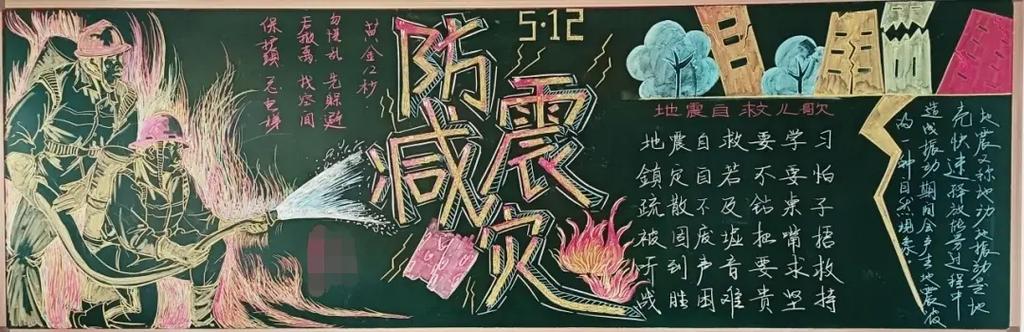 5·12
防震
减灾
黄金12秒
勿慌乱 先躲避
找空间
忌电梯
地震自救儿歌
地震自救要学习
鎮定自若不要怕
疏散不及钻桌子
被困废墟把嘴捂
听到声音要求救
战胜困难贵坚持
地震又称地动地振动是地
壳快速释放能量过程中
造成振动期间会产生地震波
的一种自然现象